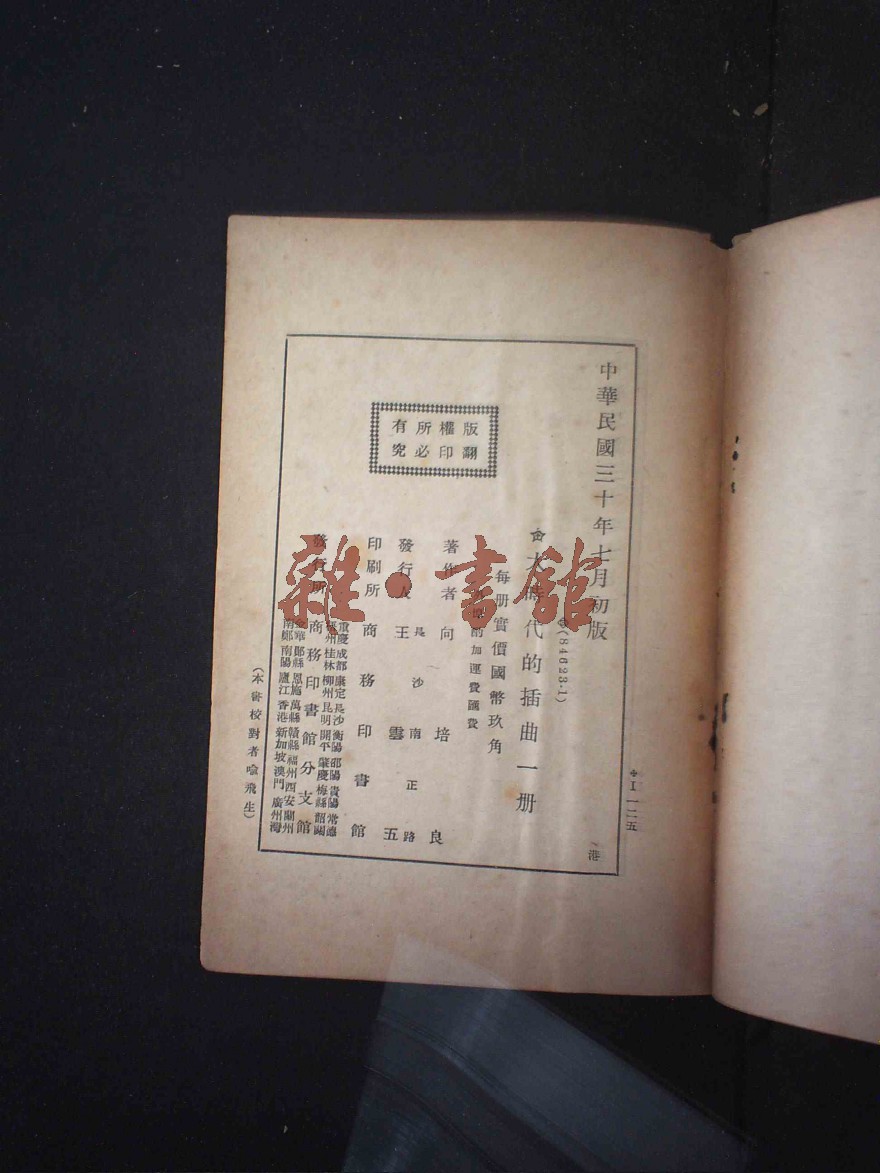 中華民國三十年七月初版
(84623-1)
大時代的插曲一册
每册實價國幣玖角
酌加運費匯費
版權所有
翻印必究
著作者 向培良
長沙南正路
發行人 王雲五
印刷所 商務印書館
發行所 商務印書館分支館
重慶 成都 康定 長沙 衡陽 邵陽 貴陽 常德
桂林 柳州 昆明 開平 肇慶 梅縣 韶關
金華 鄖縣 恩施 萬縣 贛縣 福州 西安 蘭州
南鄭 南陽 廬江 香港 新加坡 澳門 廣州灣
(本書校對者喻飛生)
港
✣I一二五
雜·書館